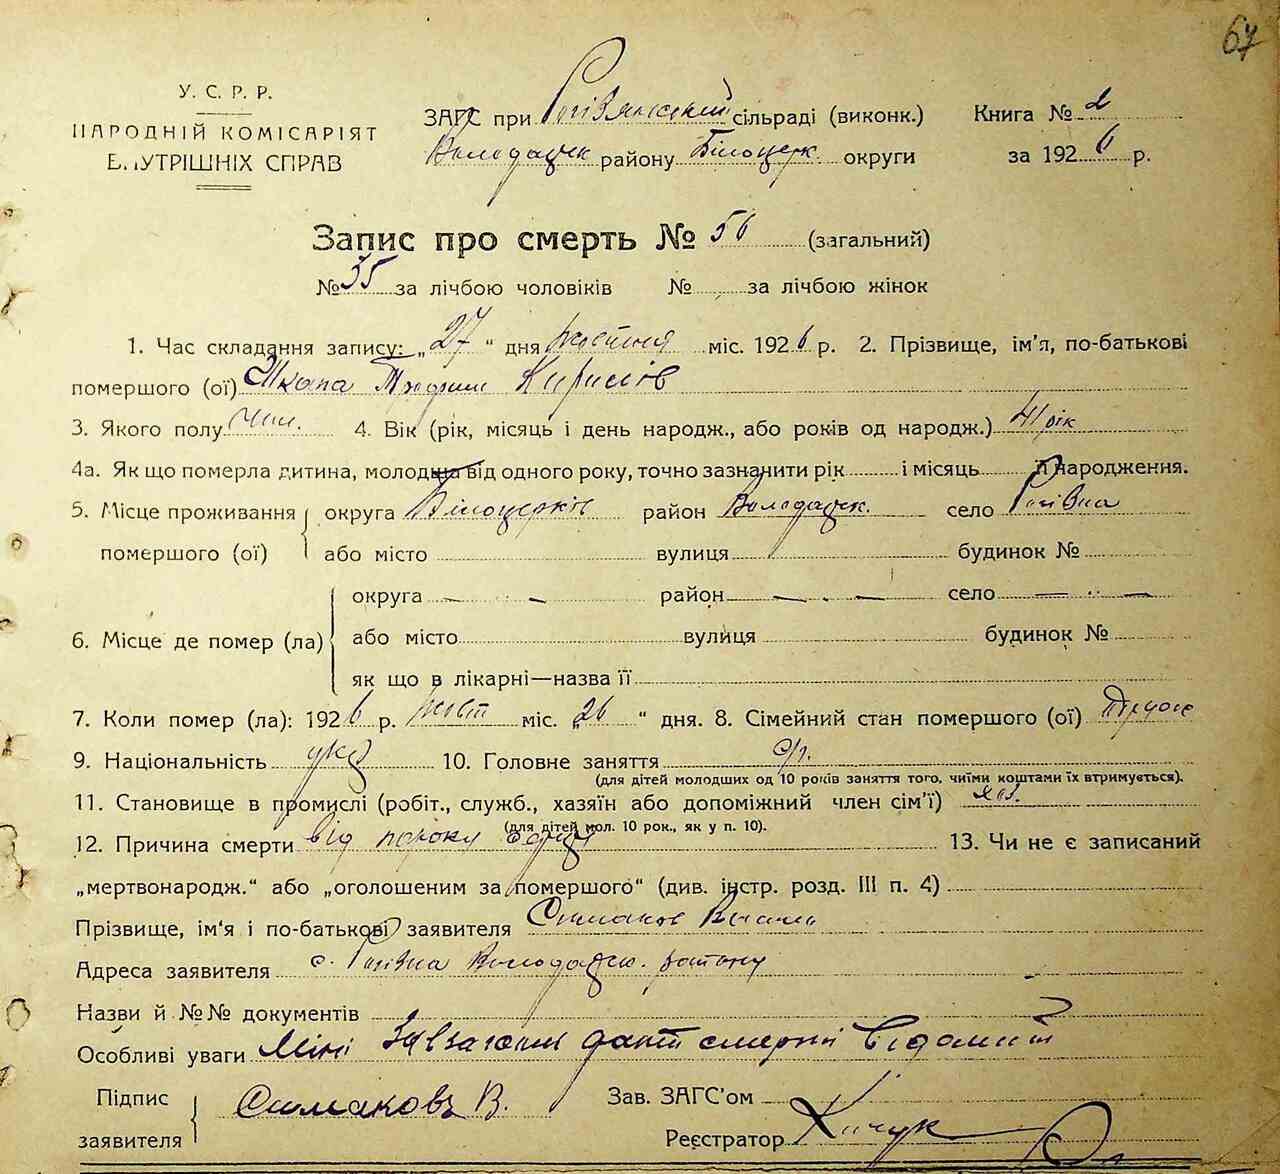 67
У. С. Р. Р.
НАРОДНІЙ КОМІСАРІЯТ
ВНУТРІШНІХ СПРАВ
ЗАГС при сільраді (виконк.) Книга № 2
Володарск району Білоцерк. округи за 1926 р.
Запис про смерть № 56 (загальний)
№ 35 за лічбою чоловіків № за лічбою жінок
1. Час складання запису: „27“ дня жовтня міс. 1926 р. 2. Прізвище, ім’я, по-батькові
помершого (ої) Шкапа Трофим Кирилів
3. Якого полу чол. 4. Вік (рік, місяць і день народж., або років од народж.) 41 рік
4а. Як що померла дитина, молодша від одного року, точно зазначити рік і місяць її народження.
5. Місце проживання округа Білоцерків район Володарск. село
помершого (ої) або місто вулиця будинок №
округа — район — село —
6. Місце де помер (ла) або місто вулиця будинок №
як що в лікарні—назва її
7. Коли помер (ла): 1926 р. жовт міс. „26“ дня. 8. Сімейний стан помершого (ої)
9. Національність укр 10. Головне заняття
(для дітей молодших од 10 років заняття того, чиїми коштами їх втримується).
11. Становище в промислі (робіт., служб., хазяїн або допоміжний член сім’ї) хаз.
(для дітей мол. 10 рок., як у п. 10).
12. Причина смерти від пороку серця 13. Чи не є записаний
„мертвонародж.“ або „оголошеним за помершого“ (див. інстр. розд. III п. 4)
Прізвище, ім‘я і по-батькові заявителя Симаков
Адреса заявителя с. Володарск. району
Назви й №№ документів
Особливі уваги Мені факт смерти відомий
Підпис заявителя Симаковъ В. Зав. ЗАГС’ом
Реєстратор